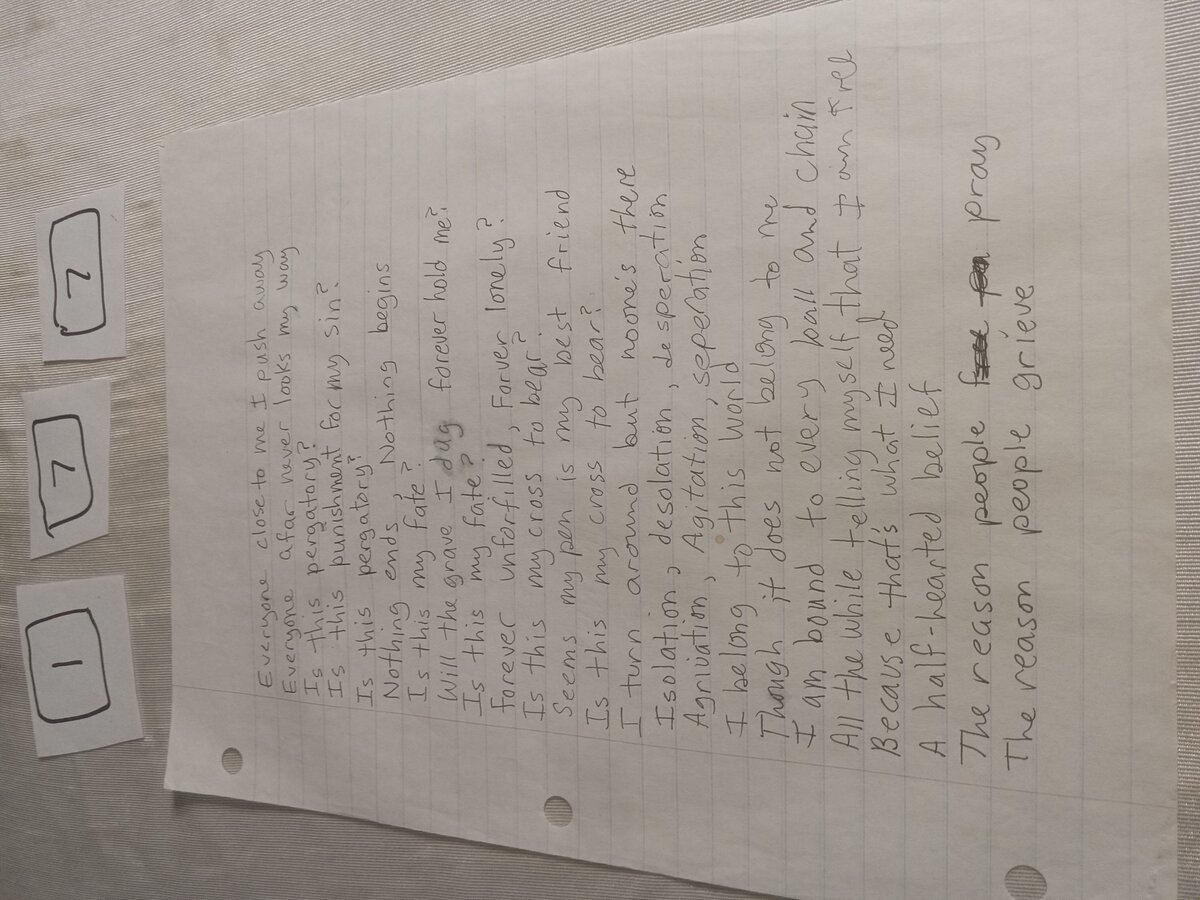 1 7 7
Everyone close to me I push away
Everyone afar never looks my way
Is this pergatory?
Is this punishment for my sin?
Is this pergatory?
Nothing ends, Nothing begins
Is this my fate?
Will the grave I dug forever hold me?
Is this my fate?
Forever unforfilled, Forver lonely?
Is this my cross to bear?
Seems my pen is my best friend
Is this my cross to bear?
I turn around but noone's there
Isolation, desolation, desperation
Agrivation, Agitation, seperation
I belong to this world
Though it does not belong to me
I am bound to every ball and chain
All the while telling myself that I am free
Because that's what I need
A half-hearted belief
The reason people pray
The reason people grieve